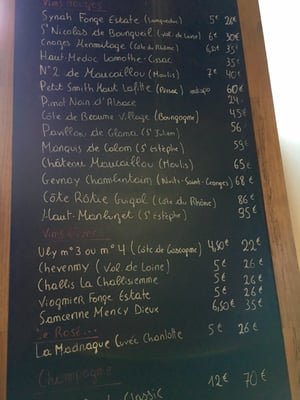 Vins Rouges
Syrah Forge Estate (Languedoc) 5€ 26€
St Nicolas de Bourgueil (Val de Loire) 6€ 30€
Crozes Hermitage (Côte du Rhône) 35€
Haut Medoc Lamothe-Cissac 35€
N°2 de Maucaillou (Moulis) 7€ 40€
Petit Smith Haut Lafitte (Pessac) 60€
Pinot Noir d'Alsace 24
Côte de Beaune Village (Bourgogne) 45€
Pavillon de Glana (St Julien) 56
Marquis de Calon (St Estèphe) 59€
Château Maucaillou (Moulis) 65€
Gevrey Chambertain (Nuits-Saint-Georges) 68€
Côte Rôtie Guigal (Côte du Rhône) 86€
Haut-Marbuzet (St Estèphe) 95€
Vins Blancs
Uby n°3 ou n°4 (Côte de Gascogne) 4,50€ 22€
Cheverny (Val de Loire) 5€ 26€
Chablis La Chablisienne 5€ 26€
Viognier Forge Estate 5€ 26€
Sancerre Mercy Dieux 6,50€ 35€
Le Rosé...
La Madrague Cuvée Charlotte 5€ 26€
Champagne
Classic 12€ 70€